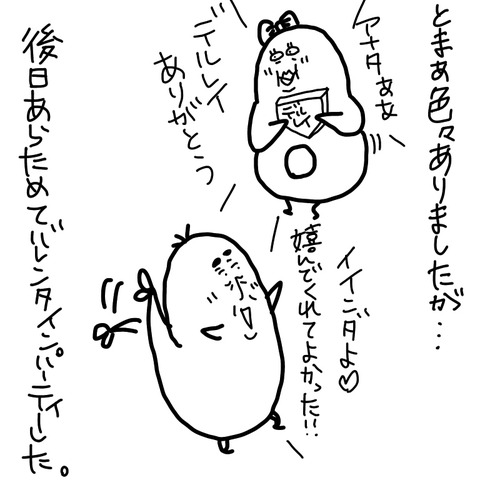 とまぁ色々ありましたが・・・
アナタぁぁ
デルレイ
ありがとう
デル
レイ
イインダヨ♡
嬉んでくれてよかった!!
後日あらためてバレンタインパーティーした。